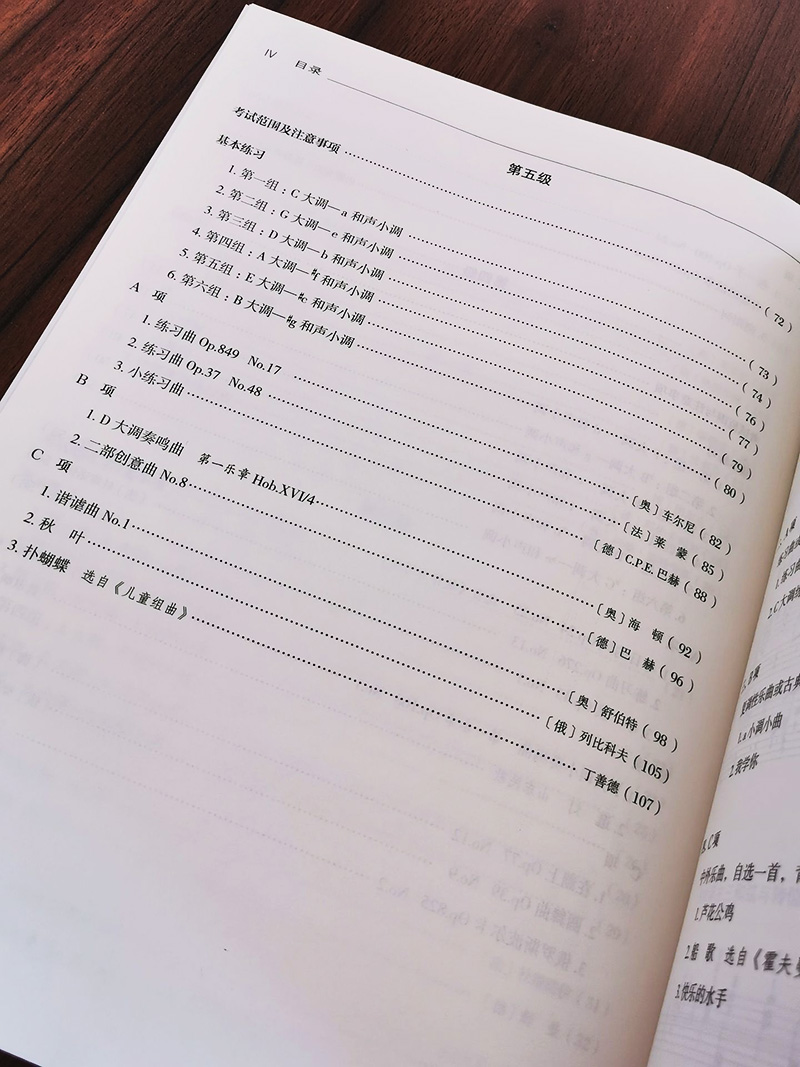 IV 目录
第五级
考试范围及注意事项 ……（72）
基本练习
1. 第一组：C 大调—a 和声小调 ……（73）
2. 第二组：G 大调—e 和声小调 ……（74）
3. 第三组：D 大调—b 和声小调 ……（76）
4. 第四组：A 大调—#f 和声小调 ……（77）
5. 第五组：E 大调—#c 和声小调 ……（79）
6. 第六组：B 大调—#g 和声小调 ……（80）
A 项
1. 练习曲 Op.849 No.17 ……〔奥〕车尔尼（82）
2. 练习曲 Op.37 No.48 ……〔法〕莱 蒙（85）
3. 小练习曲 ……〔德〕C.P.E.巴赫（88）
B 项
1. D 大调奏鸣曲 第一乐章 Hob.XVI/4 ……〔奥〕海 顿（92）
2. 二部创意曲 No.8 ……〔德〕巴 赫（96）
C 项
1. 谐谑曲 No.1 ……〔奥〕舒伯特（98）
2. 秋 叶 ……〔俄〕列比科夫（105）
3. 扑蝴蝶 选自《儿童组曲》 ……丁善德（107）
2.C大调
B项
复调性乐曲或古典
1.a小调小曲
2.我学你
C项
中外乐曲，自选一首，
1.芦花公鸡
2.船 歌 选自《霍夫
3.快乐的水手